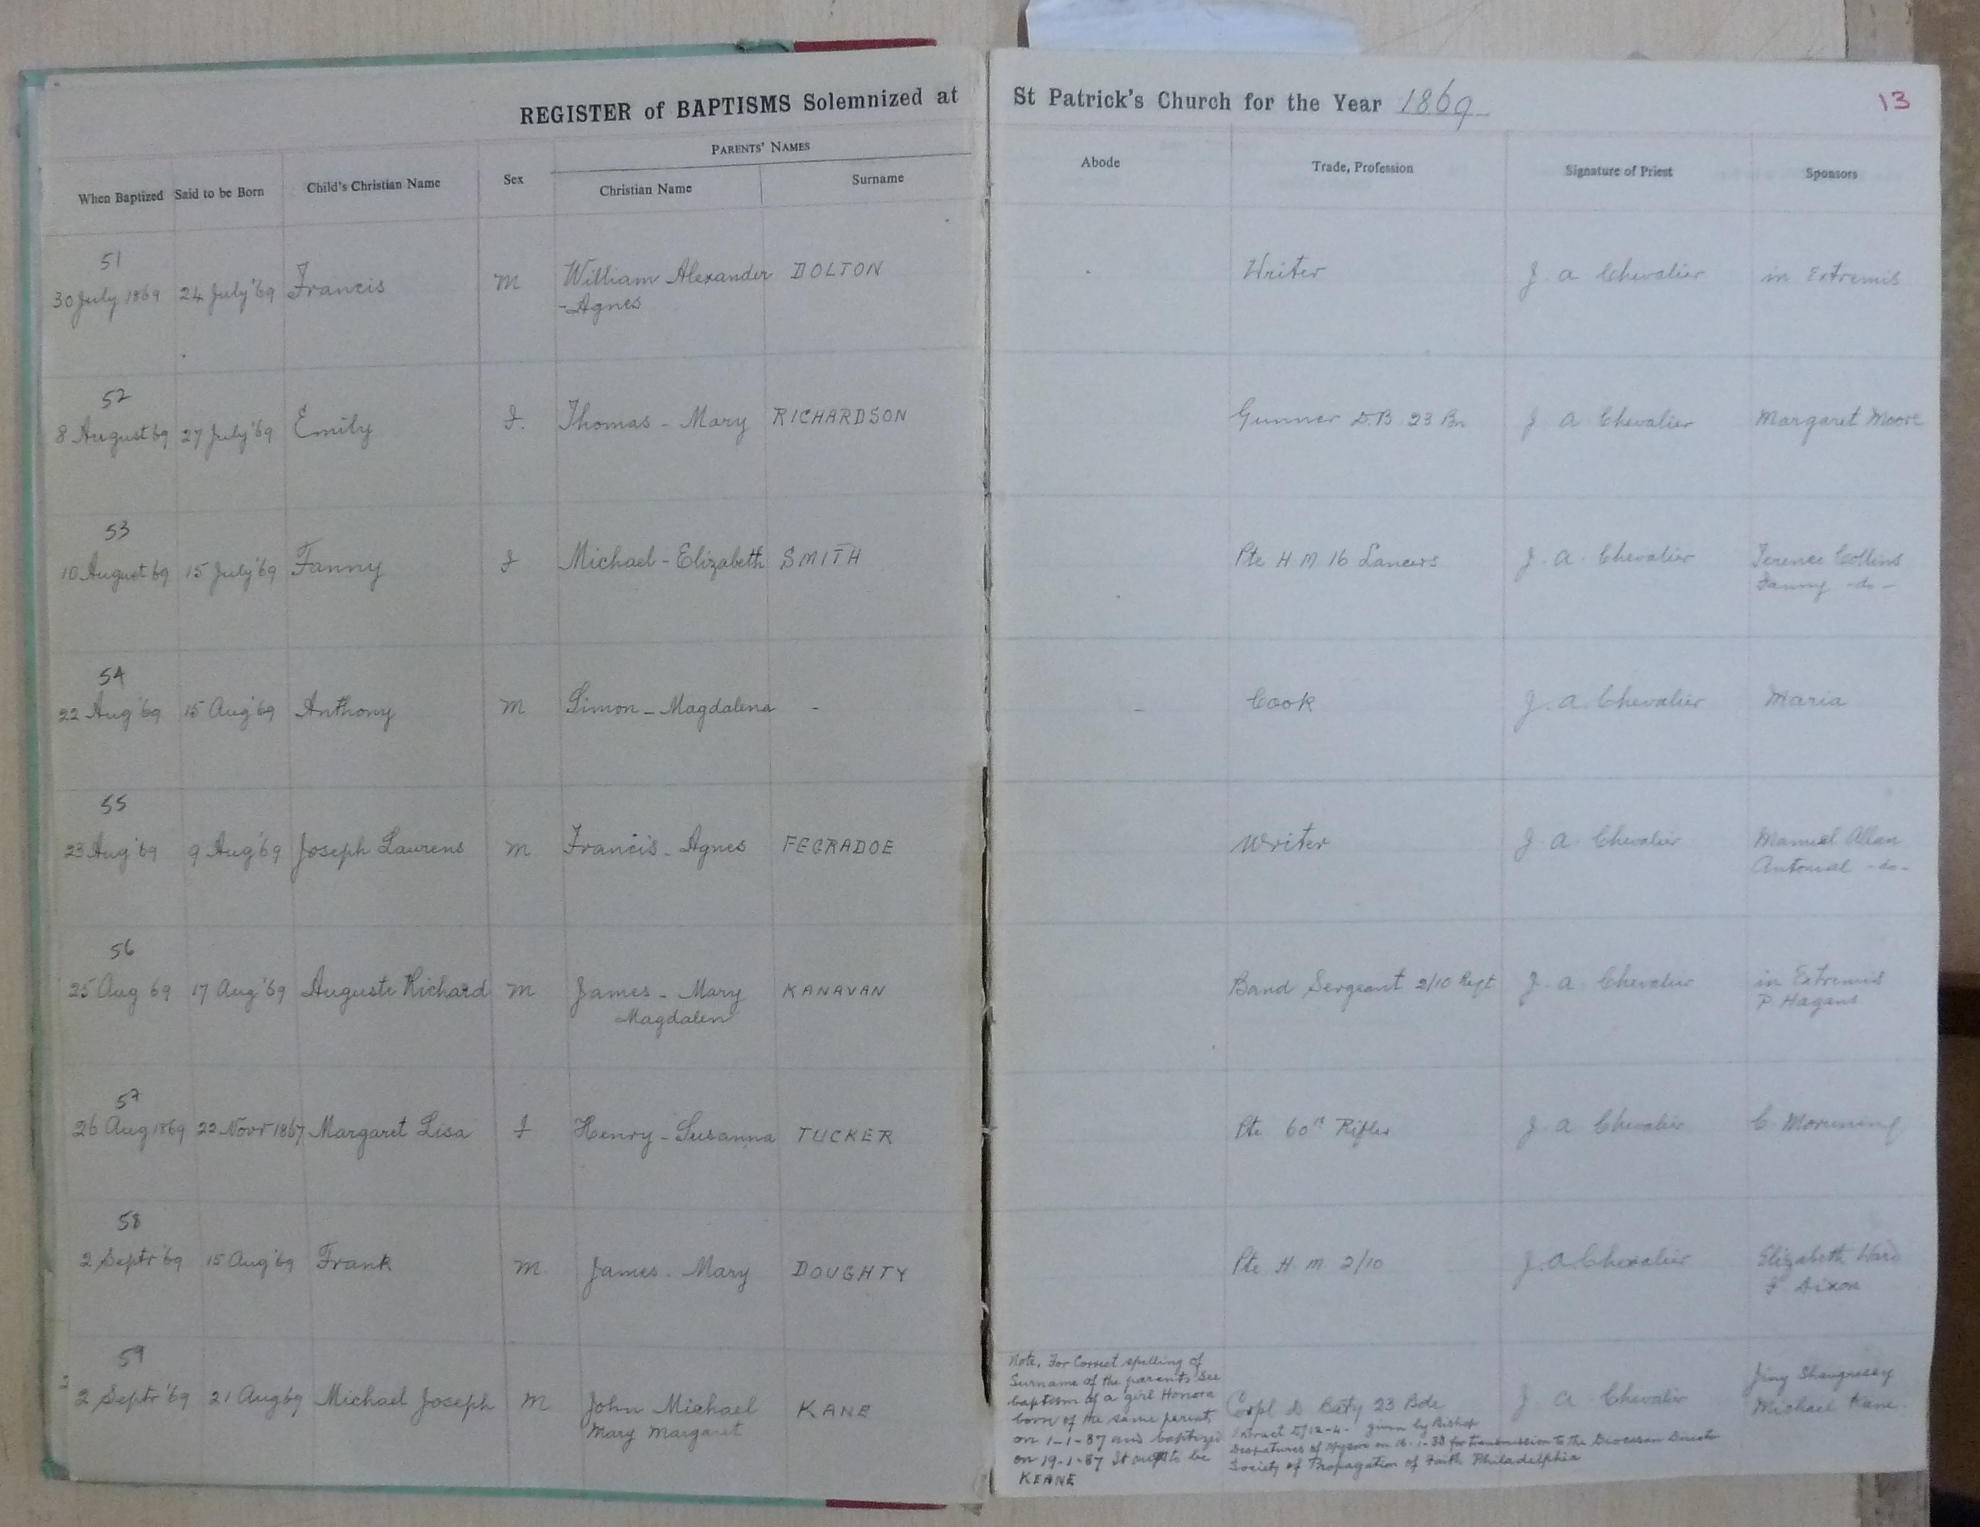 REGISTER of BAPTISMS Solemnized at St Patrick's Church for the Year 1869
13
PARENTS' NAMES
When Baptized Said to be Born Child's Christian Name Sex Christian Name Surname Abode Trade, Profession Signature of Priest Sponsors
51
30 July 1869 24 July '69 Francis M William Alexander DOLTON Writer J a Chevalier in Extremis
- Agnes
52
8 August 69 27 July '69 Emily F. Thomas - Mary RICHARDSON Gunner D.B 23 Bn J a Chevalier Margaret Moore
53
10 August 69 15 July '69 Fanny F Michael - Elizabeth SMITH Pte H M 16 Lancers J. a. Chevalier Terence Collins
Fanny -do-
54
22 Aug '69 15 Aug '69 Anthony M Simon - Magdalena - - Cook J. a. Chevalier Maria
55
23 Aug '69 9 Aug '69 Joseph Laurens M Francis - Agnes FEGRADOE Writer J. a. Chevalier Manuel Allan
-do-
56
25 Aug 69 17 Aug '69 Auguste Richard M James - Mary KANAVAN Band Sergeant 2/10 Regt J. a. Chevalier in Extremis
Magdalen P. Hagans
57
26 Aug 1869 22 Novr 1867 Margaret Lisa F Henry - Susanna TUCKER Pte 60th Rifles J. a Chevalier C
58
2 Septr '69 15 Aug '69 Frank M James - Mary DOUGHTY Pte H. M. 2/10 J. a Chevalier Elizabeth Ward
F Dixon
59
2 Septr '69 21 Aug 69 Michael Joseph M John Michael KANE Corpl D Baty 23 Bde J a Chevalier Jiny Shaugnessy
Mary Margaret Michael Kane
Note. For Correct spelling of
Surname of the parents See
baptism of a girl Honora
born of the same parents
on 1-1-87 and baptized
on 19-1-87 It ought to be
KEANE
Extract D/12-4- given by Bishop
Despatures of Mysore on 16-1-38 for transmission to the Diocesan Director
Society of Propagation of Faith Philadelphia